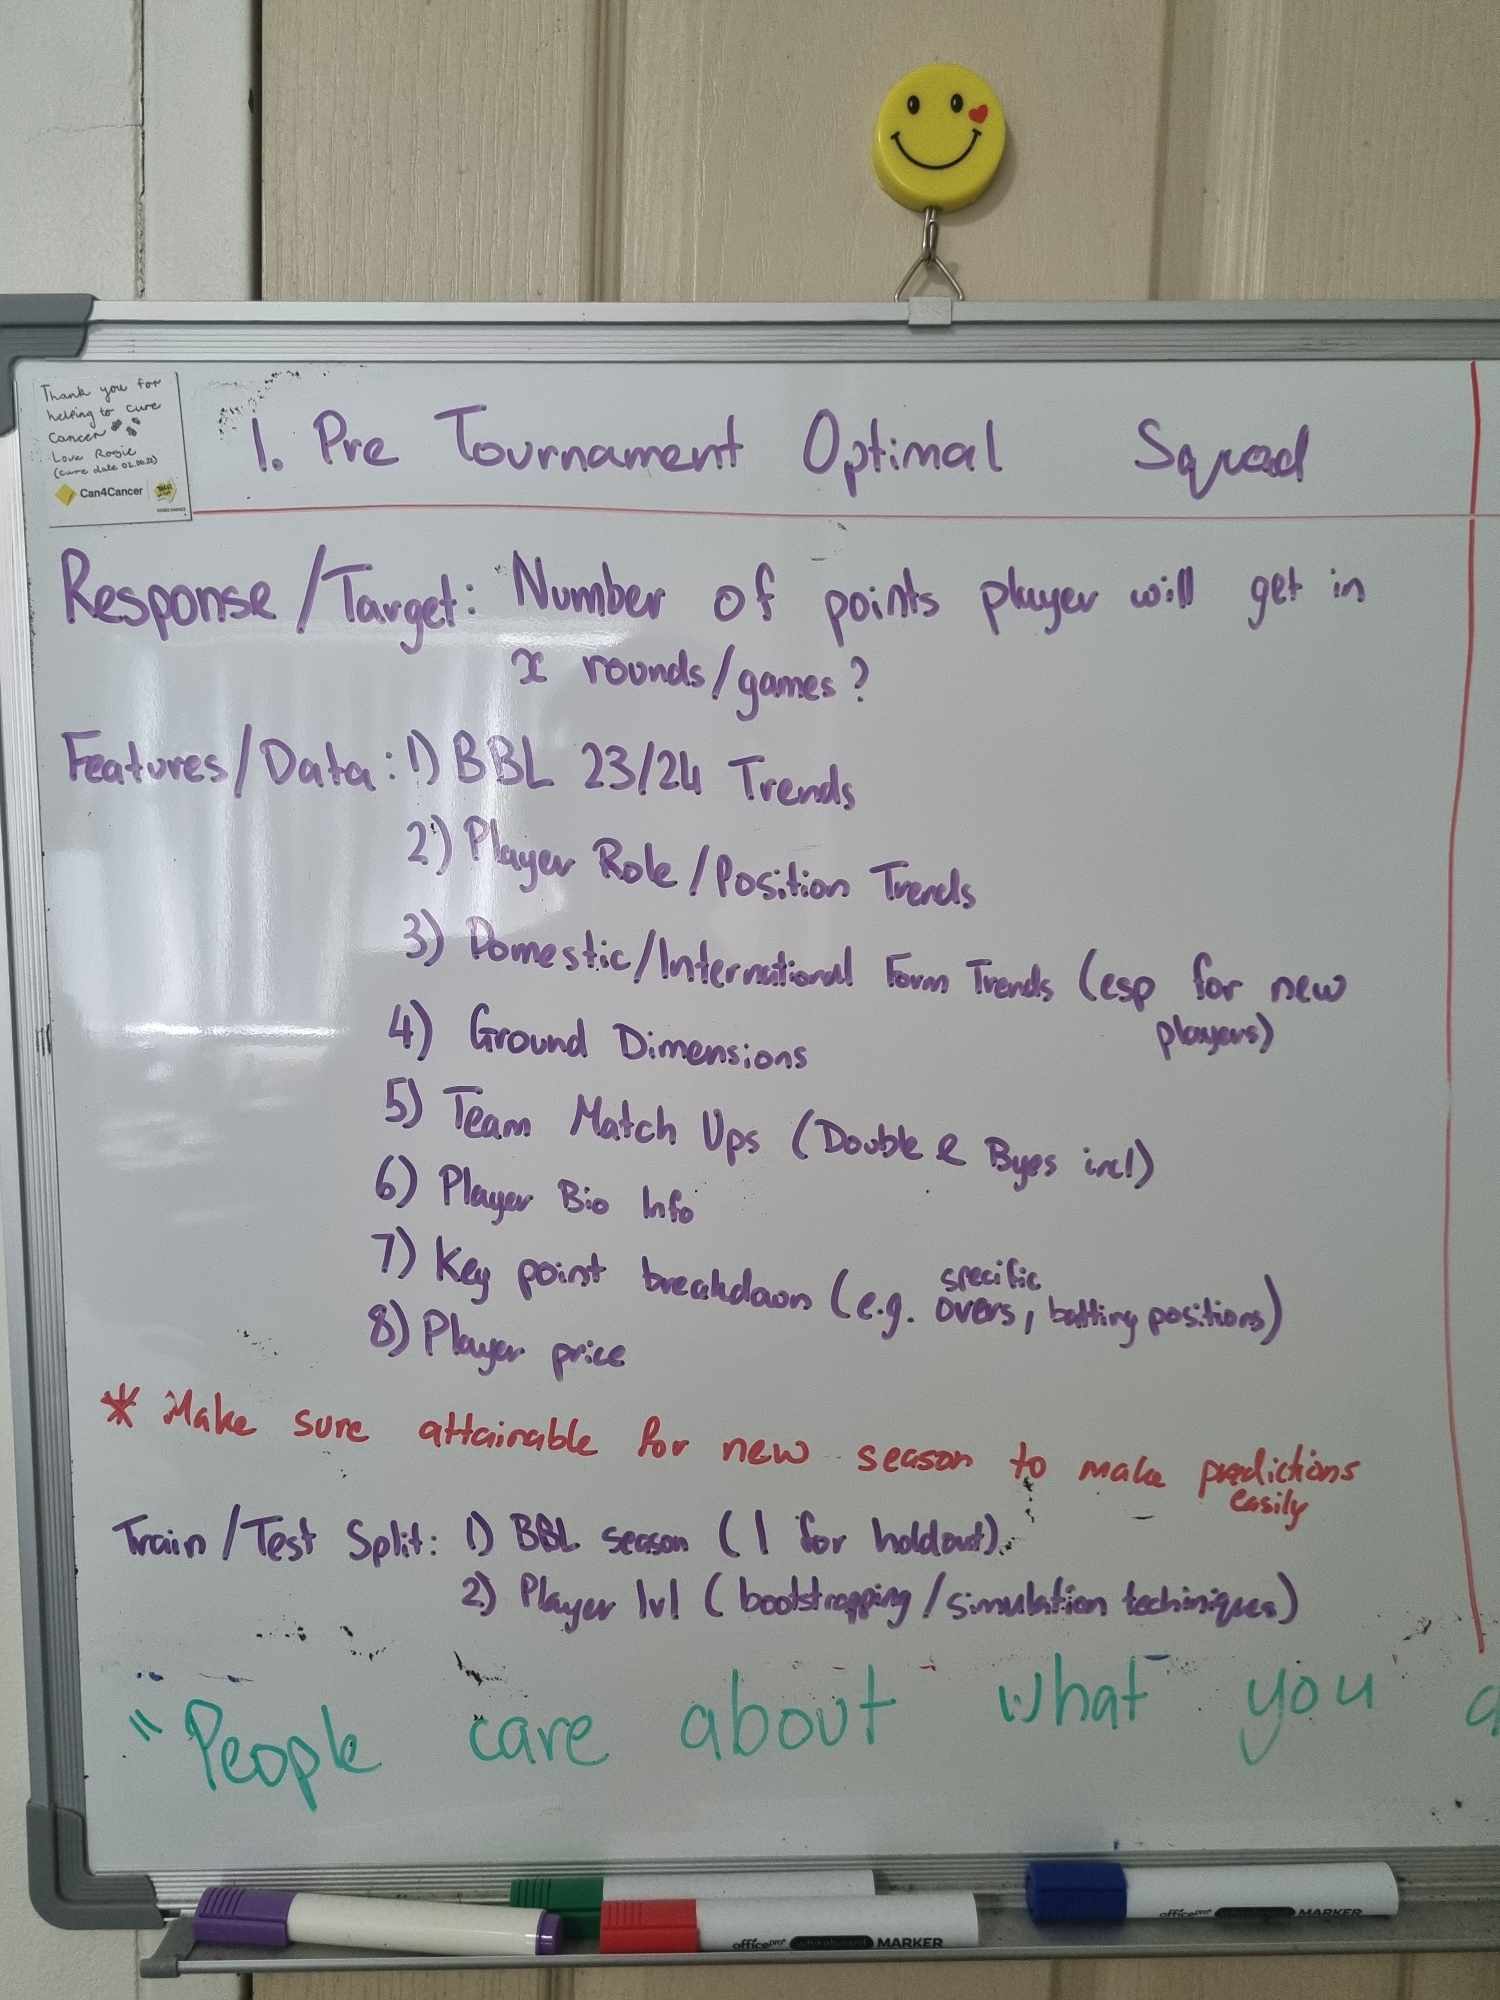 Thank you for
helping to cure
cancer
Love Rosie
Can4Cancer
1. Pre Tournament Optimal Squad
Response/Target: Number of points player will get in
x rounds/games?
Features/Data: 1) BBL 23/24 Trends
2) Player Role/Position Trends
3) Domestic/International Form Trends (esp for new
players)
4) Ground Dimensions
5) Team Match Ups (Double & Byes incl)
6) Player Bio Info
7) Key point breakdown (e.g. specific
overs, batting positions)
8) Player price
* Make sure attainable for new season to make predictions
easily
Train/Test Split: 1) BBL season (1 for holdout)
2) Player lvl (bootstrapping/simulation techiniques)
"People care about what you
officepro MARKER
officepro MARKER